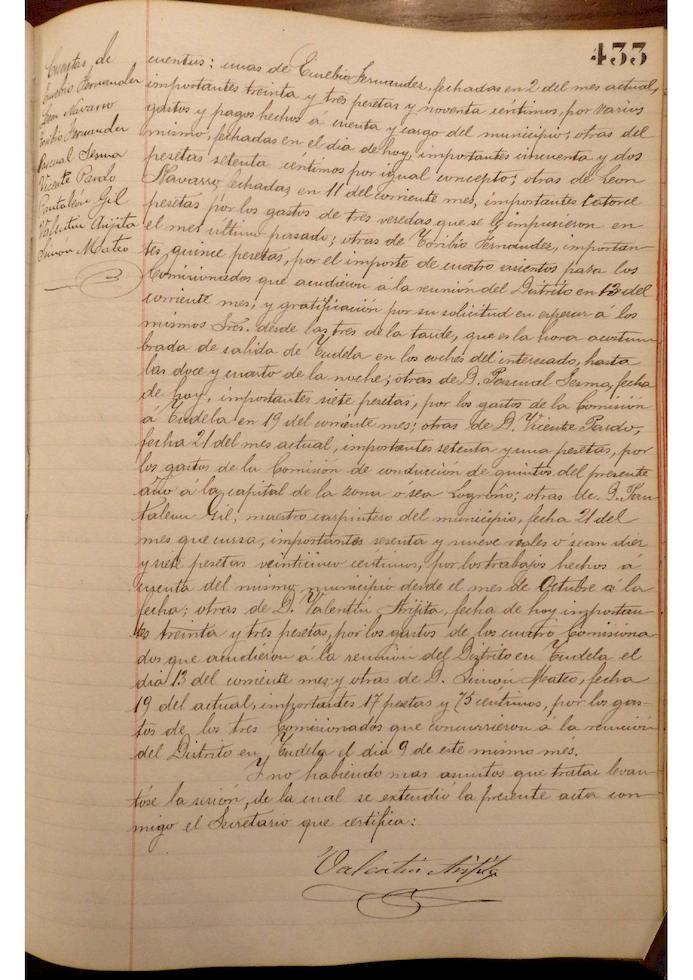 433
Cuentas de
Eusebio Fernandez
Leon Navarro
Toribio Fernandez
Pascual Sesma
Vicente Pardo
Pantaleón Gil
Valentin Arijita
Simon Mateo
cuentas: unas de Eusebio Fernandez, fechadas en 2 del mes actual,
importantes treinta y tres pesetas y noventa céntimos, por varios
gastos y pagos hechos á cuenta y cargo del municipio; otras del
mismo, fechadas en el dia de hoy, importantes cincuenta y dos
pesetas setenta céntimos por igual concepto; otras de Leon
Navarro, fechadas en 11 del corriente mes, importantes catorce
pesetas por los gastos de tres veredas que se le impusieron en
el mes ultimo pasado; otras de Toribio Fernandez, importan-
tes quince pesetas, por el importe de cuatro asientos para los
Comisionados que acudieron á la reunión del Distrito en 13 del
corriente mes, y gratificación por su solicitud en esperar á los
mismos Sres. desde las tres de la tarde, que es la hora acostum
brada de salida de Tudela en los coches del interesado, hasta
las doce y cuarto de la noche; otras de D. Pascual Sesma, fecha
de hoy, importantes siete pesetas, por los gastos de la Comisión
á Tudela en 19 del corriente mes; otras de D. Vicente Pardo,
fecha 21 del mes actual, importantes setenta y una pesetas, por
los gastos de la Comisión de conducción de quintos del presente
año á la capital de la zona ó sea Logroño; otras de D. Pan
taleon Gil, maestro carpintero del municipio, fecha 21 del
mes que cursa, importantes sesenta y nueve reales ó sean diez
y siete pesetas veinticinco céntimos, por los trabajos hechos á
cuenta del mismo municipio desde el mes de Octubre á la
fecha; otras de D. Valentín Arijita, fecha de hoy importan-
tes treinta y tres pesetas, por los gastos de los cuatro Comisiona
dos que acudieron á la reunión del Distrito en Tudela el
dia 13 del corriente mes y otras de D. Simón Mateo, fecha
19 del actual, importantes 17 pesetas y 75 céntimos, por los gas-
tos de los tres Comisionados que concurrieron á la reunión
del Distrito en Tudela el dia 9 de este mismo mes.
Y no habiendo mas asuntos que tratar levan-
tóse la sesión, de la cual se extendió la presente acta con-
migo el Secretario que certifica:
Valentin Arijita